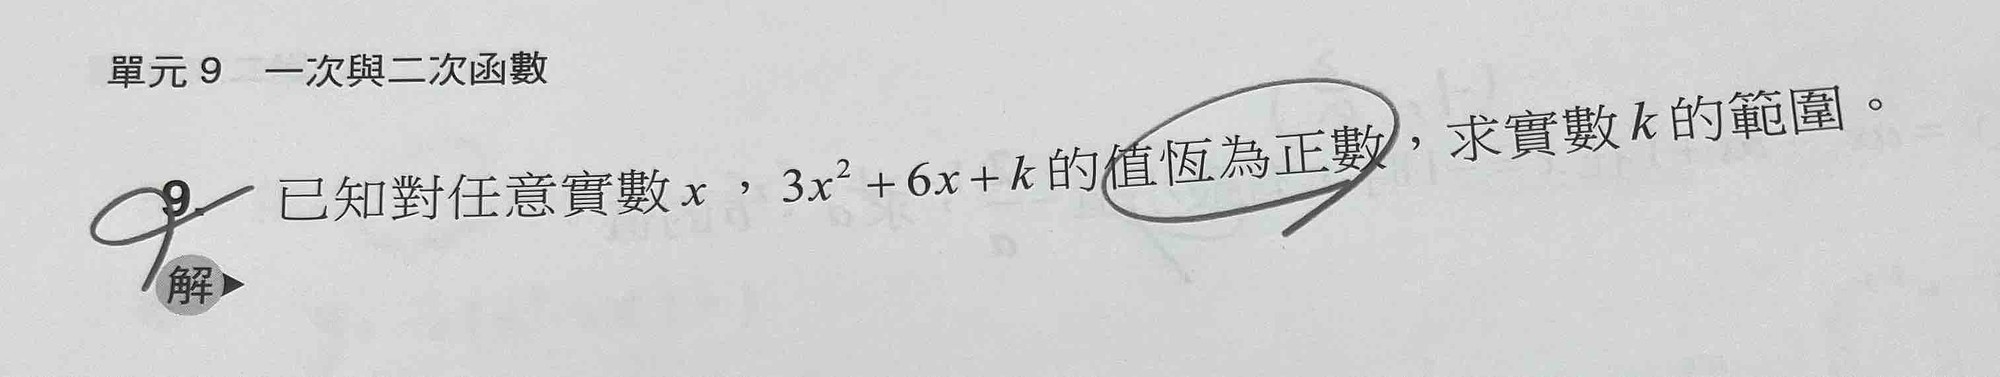 單元 9 一次與二次函數
9. 已知對任意實數 x ，3x² + 6x + k 的值恆為正數，求實數 k 的範圍。
解